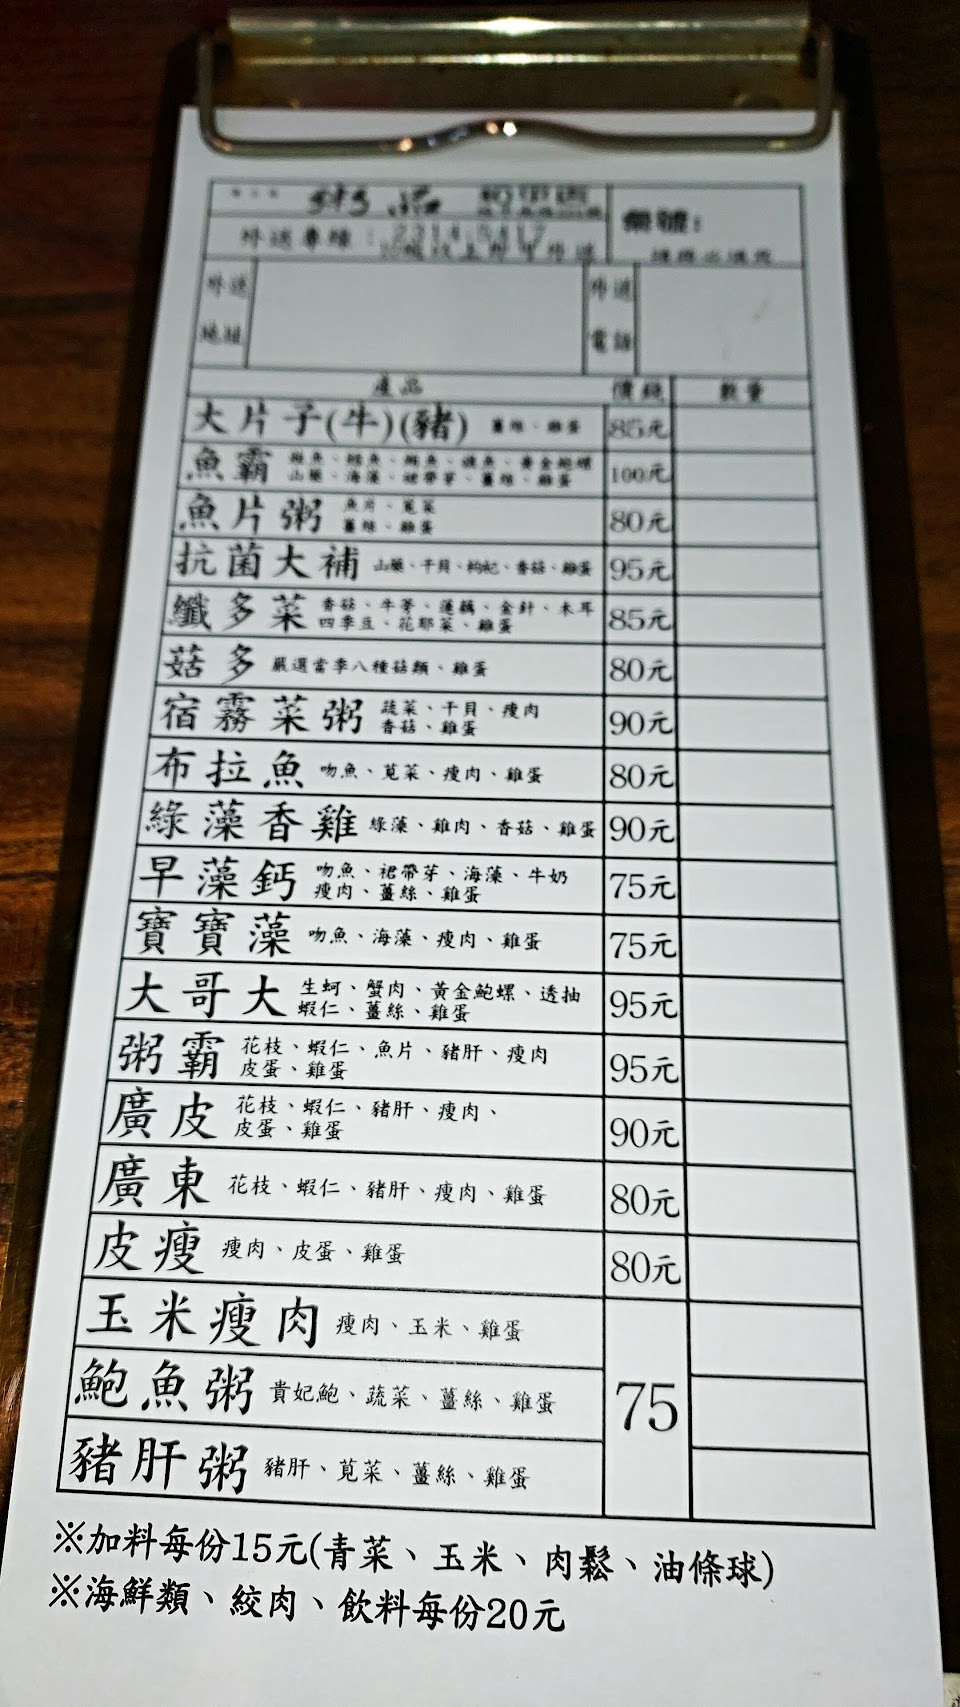 粥品
桌號:
外送專線:2314-5817
外送
地址
外送
電話
產品 價錢 數量
大片子(牛)(豬) 薑絲、雞蛋 85元
魚霸 黃金鮑螺 100元
山藥、海藻、裙帶芽、薑絲、雞蛋
魚片粥 魚片、莧菜 80元
薑絲、雞蛋
抗菌大補 山藥、干貝、枸杞、香菇、雞蛋 95元
纖多菜 香菇、牛蒡、蓮藕、金針、木耳 85元
四季豆、花耶菜、雞蛋
菇多 嚴選當季八種菇類、雞蛋 80元
宿霧菜粥 蔬菜、干貝、瘦肉 90元
香菇、雞蛋
布拉魚 吻魚、莧菜、瘦肉、雞蛋 80元
綠藻香雞 綠藻、雞肉、香菇、雞蛋 90元
早藻鈣 吻魚、裙帶芽、海藻、牛奶 75元
瘦肉、薑絲、雞蛋
寶寶藻 吻魚、海藻、瘦肉、雞蛋 75元
大哥大 生蚵、蟹肉、黃金鮑螺、透抽 95元
蝦仁、薑絲、雞蛋
粥霸 花枝、蝦仁、魚片、豬肝、瘦肉 95元
皮蛋、雞蛋
廣皮 花枝、蝦仁、豬肝、瘦肉、 90元
皮蛋、雞蛋
廣東 花枝、蝦仁、豬肝、瘦肉、雞蛋 80元
皮瘦 瘦肉、皮蛋、雞蛋 80元
玉米瘦肉 瘦肉、玉米、雞蛋
鮑魚粥 貴妃鮑、蔬菜、薑絲、雞蛋 75
豬肝粥 豬肝、莧菜、薑絲、雞蛋
※加料每份15元(青菜、玉米、肉鬆、油條球)
※海鮮類、絞肉、飲料每份20元